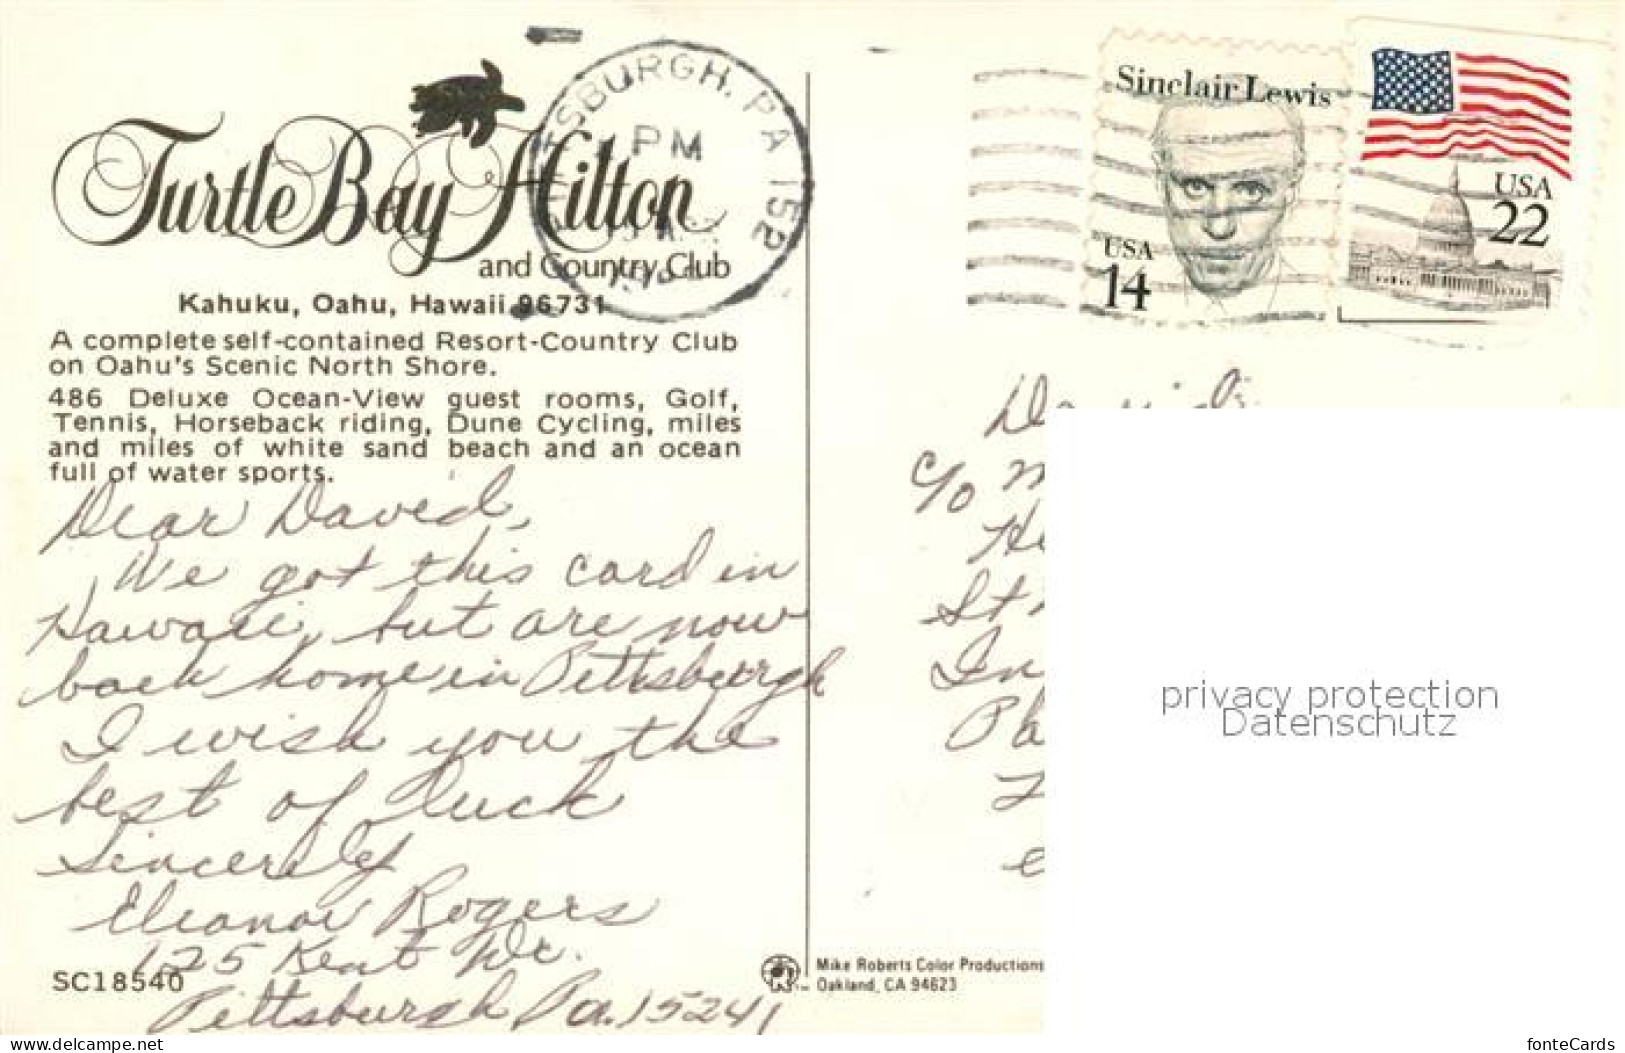 Turtle Bay Hilton
and Country Club
Kahuku, Oahu, Hawaii 96731
A complete self-contained Resort-Country Club
on Oahu's Scenic North Shore.
486 Deluxe Ocean-View guest rooms, Golf,
Tennis, Horseback riding, Dune Cycling, miles
and miles of white sand beach and an ocean
full of water sports.
Dear David,
We got this card in
Hawaii, but are now
back home in Pittsburgh
I wish you the
best of luck
Sincerely
Eleanor Rogers
125 Kent Dr.
Pittsburgh Pa. 15241
SC18540
TSBURGH, PA 152
PM
Sinclair Lewis
USA
14
USA
22
David
c/o M
St
In
privacy protection
Datenschutz
Mike Roberts Color Productions
Oakland, CA 94623
www.delcampe.net
fonteCards